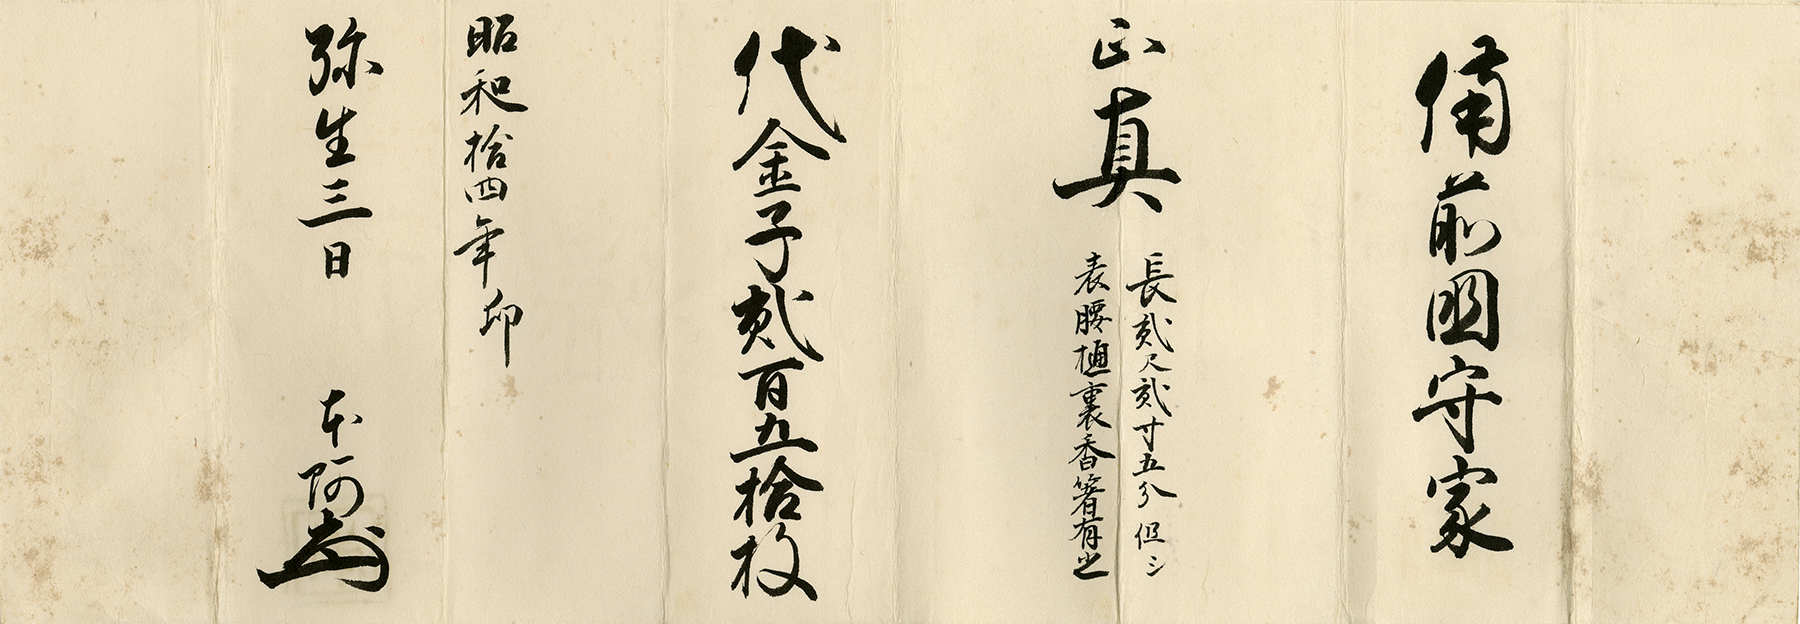 備前國守家
正真
長貳尺貳寸五分但シ
表腰樋裏香箸有之
代金子貳百五拾枚
昭和拾四年卯
弥生三日
本阿